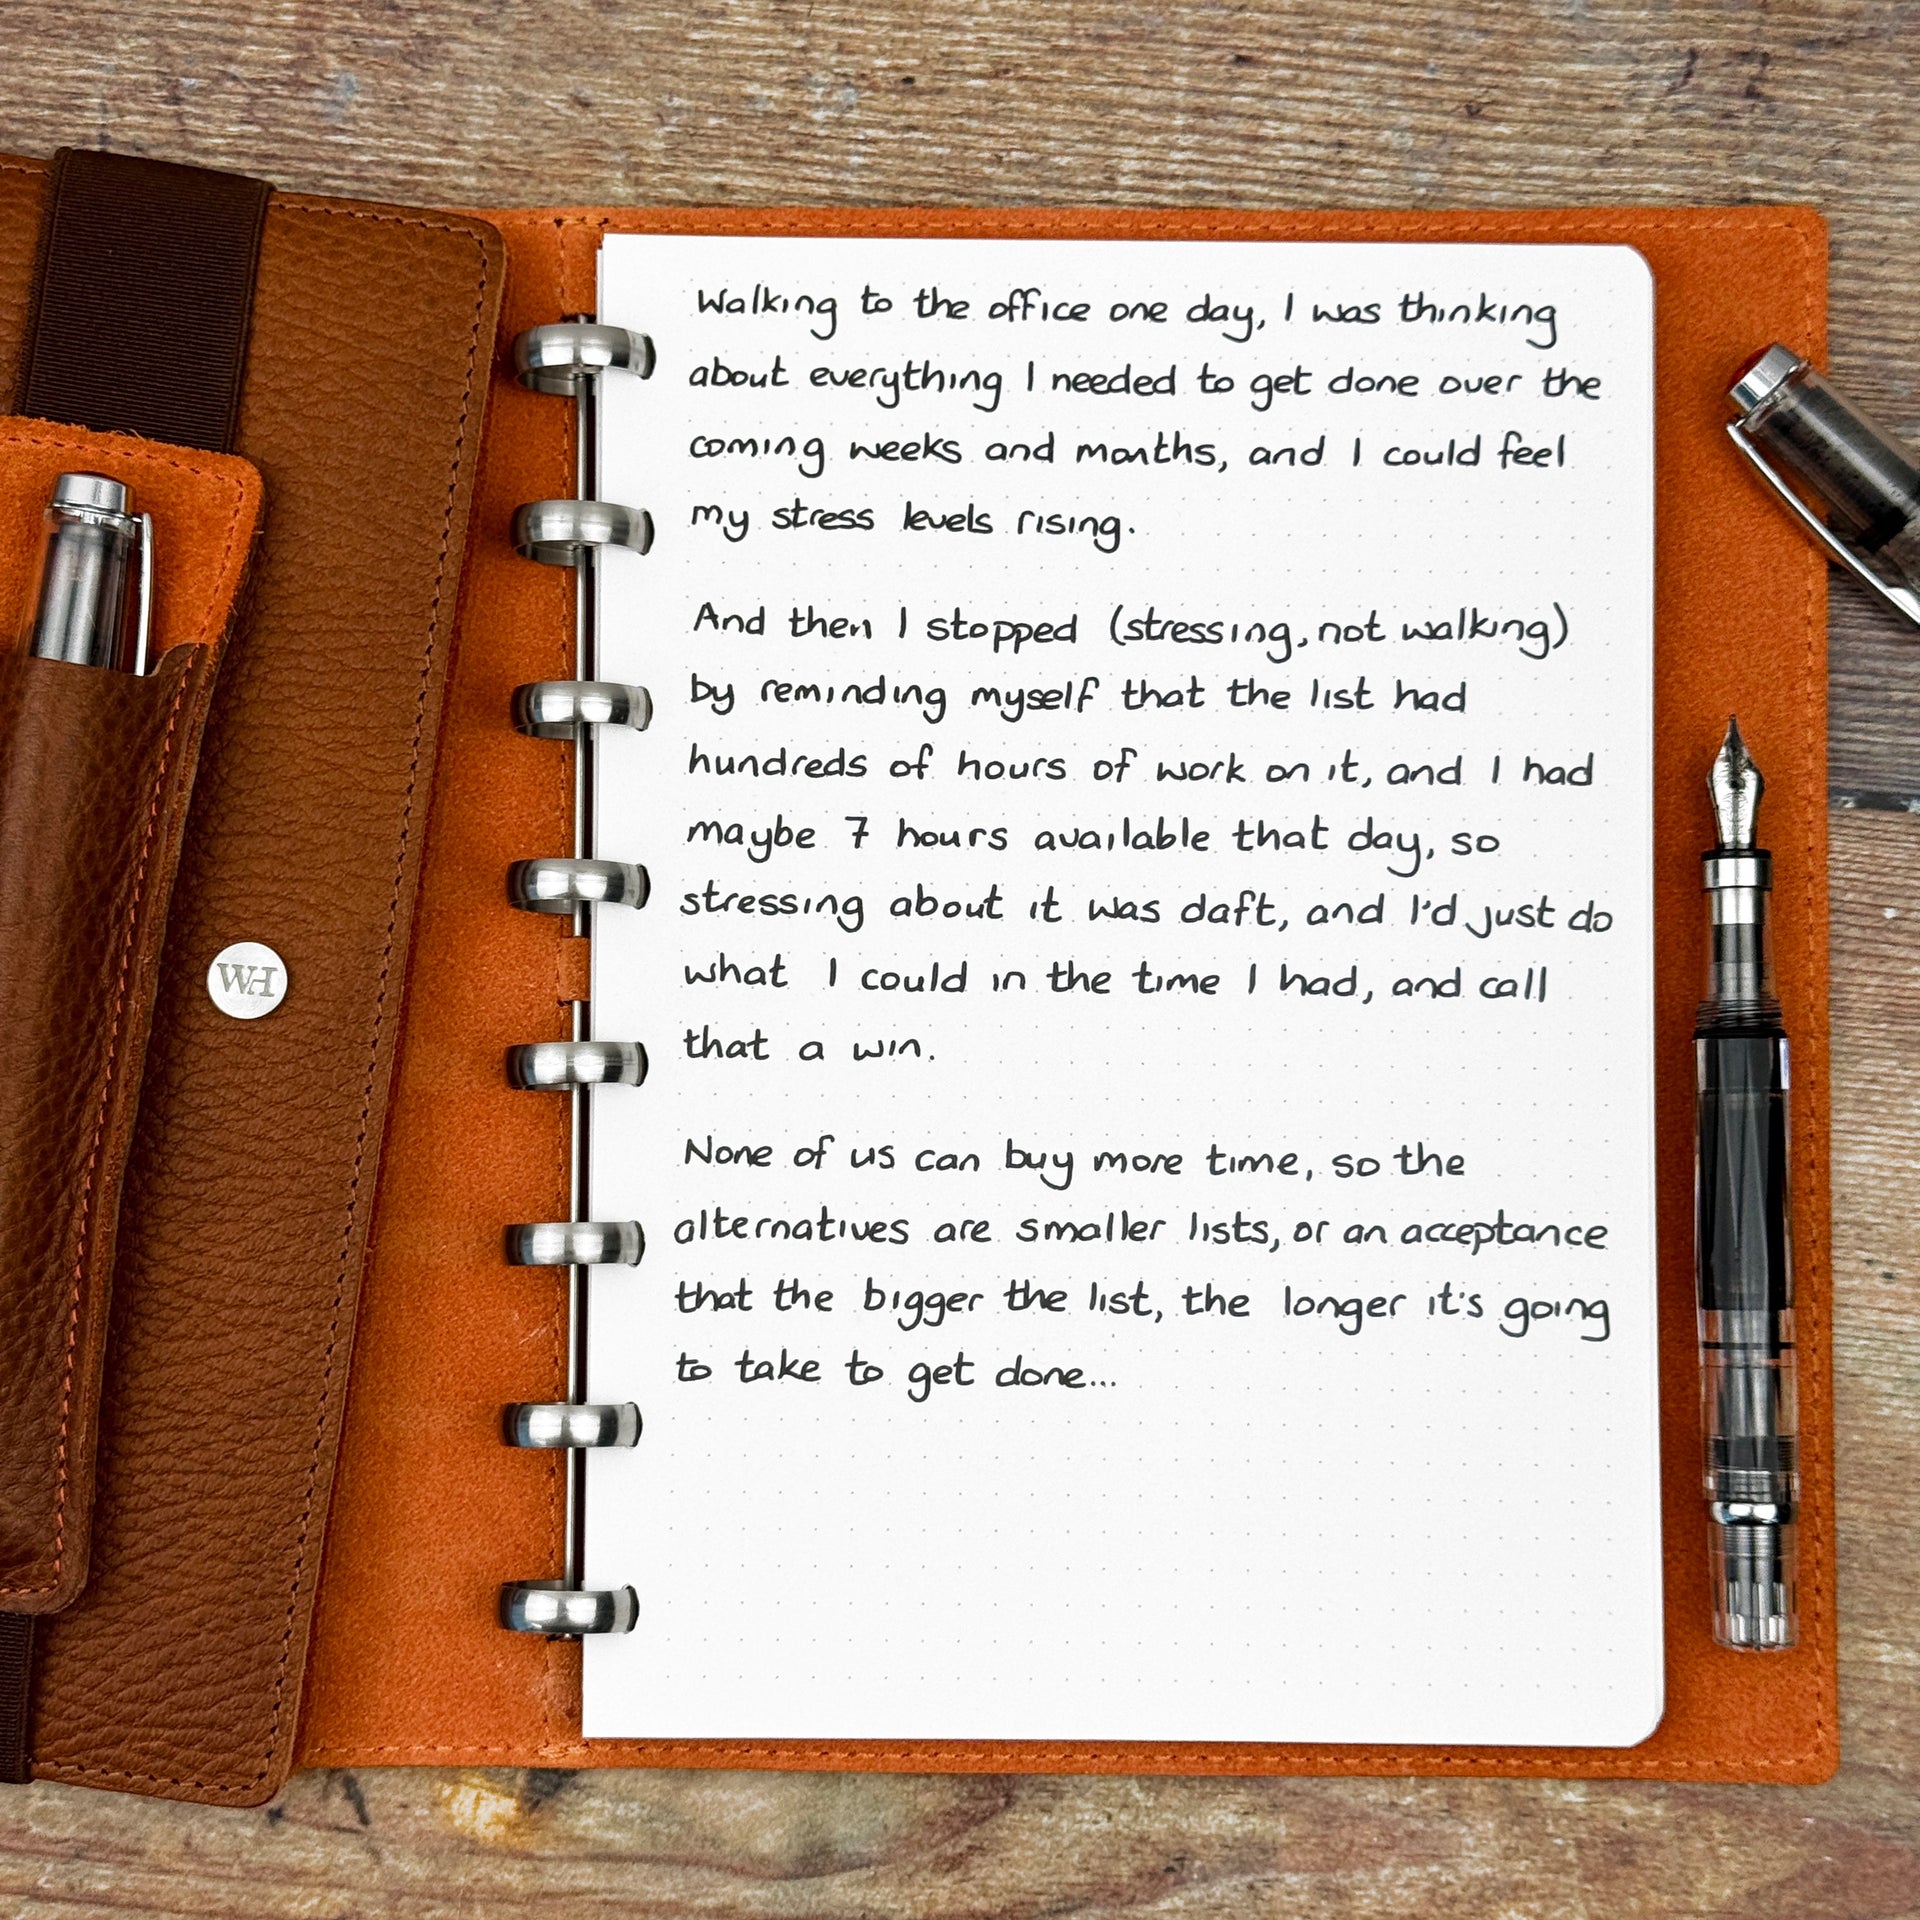 Walking to the office one day, I was thinking
about everything I needed to get done over the
coming weeks and months, and I could feel
my stress levels rising.
And then I stopped (stressing, not walking)
by reminding myself that the list had
hundreds of hours of work on it, and I had
maybe 7 hours available that day, so
stressing about it was daft, and I'd just do
what I could in the time I had, and call
that a win.
None of us can buy more time, so the
alternatives are smaller lists, or an acceptance
that the bigger the list, the longer it's going
to take to get done...
WH